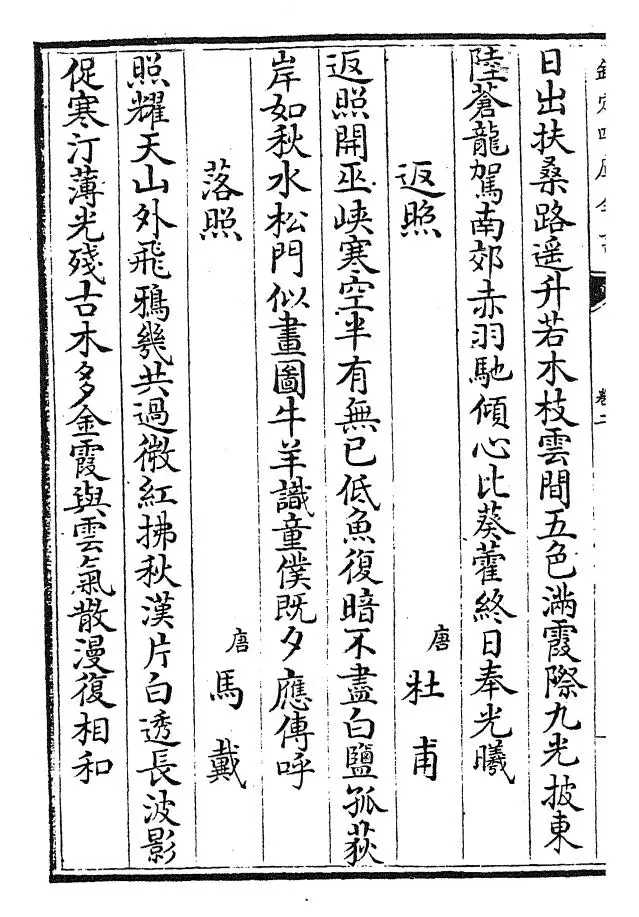 欽定四庫全書
卷二
日出扶桑路遥升若木枝雲間五色滿霞際九光披東
陸蒼龍駕南郊赤羽馳傾心比葵藿終日奉光曦
返照
唐
杜甫
返照開巫峽寒空半有無已低魚復暗不盡白鹽孤荻
岸如秋水松門似畫圖牛羊識童僕既夕應傳呼
落照
唐
馬戴
照耀天山外飛鴉幾共過微紅拂秋漢片白透長波影
促寒汀薄光殘古木多金霞與雲氣散漫復相和